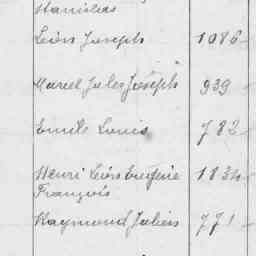 Stanislas
Léon Joseph 1086
Marcel Jules Joseph 939
Emile Louis 782
Henri Léon Eugène 1834
François
Raymond Julien 771